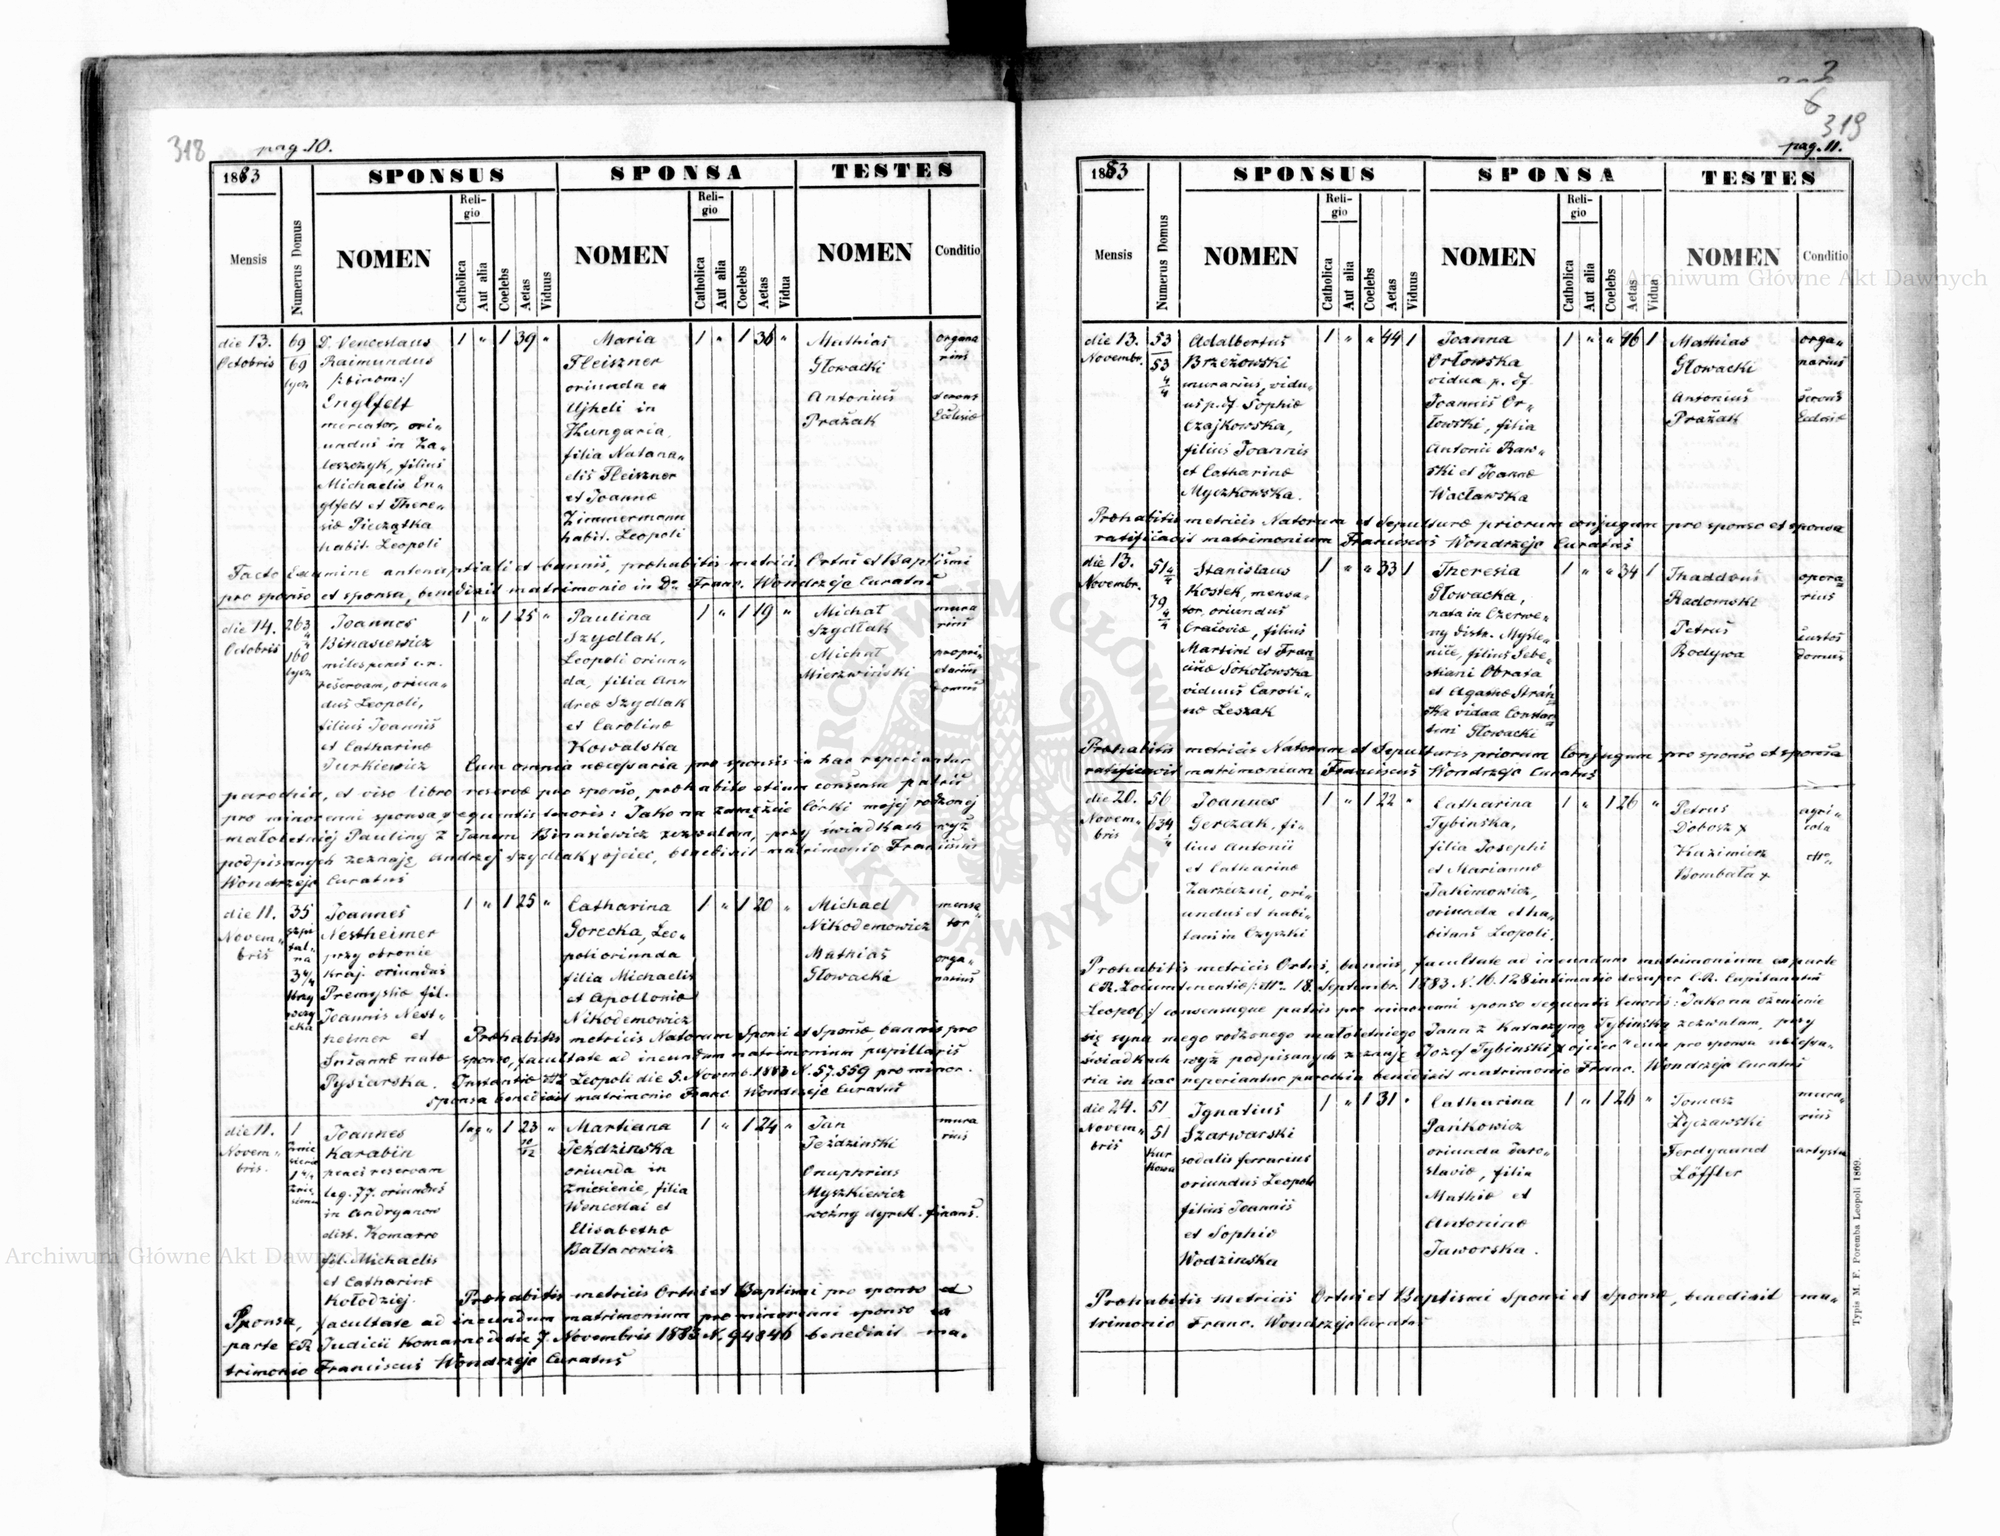 318
pag. 10.
1883
SPONSUS
SPONSA
TESTES
Mensis
Numerus Domus
NOMEN
Religio
Catholica
Aut alia
Coelebs
Aetas
Viduus
NOMEN
Religio
Catholica
Aut alia
Coelebs
Aetas
Vidua
NOMEN
Conditio
die 13.
Octobris
69
69
D. Venceslaus
Raimundus
/:binom:/
Englfelt
mercator, ori-
undus in Za-
leszczyk, filius
Michaelis En-
glfelt et There-
siæ Pieczątka
habit. Leopoli
1 " 1 39 "
Maria
Fleiszner
oriunda ex
Ujheli in
Hungaria,
filia Natana-
elis Fleiszner
et Joannæ
Zimmermann
habit. Leopoli
1 " 1 36 "
Mathias
Głowacki
Antonius
Pražak
organa
rius
servus
Ecclesiæ
Facto Examine antenuptiali et bannis, præhabitis metricis Ortus et Baptismi
pro sponso et sponsa, benedixit matrimonio in Do. Franc. Wondrzejc Curatus
die 14.
Octobris
263
4
160
Joannes
Binasiewicz
miles penes c.r.
reservam, oriun-
dus Leopoli,
filius Joannis
et Catharinæ
Jurkiewicz
1 " 1 25 "
Paulina
Szydlak,
Leopoli oriun-
da, filia An-
dreæ Szydlak
et Carolinæ
Kowalska
1 " 1 19 "
Michał
Szydłak
Michał
Mierzwiński
mura
rius
propri-
etarius
domus
Cum omnia necessaria pro sponsis in hac reperiuntur
parochia, et viso libro reservæ pro sponso, præhabito etiam consensu patris
pro minorenni sponsa sequentis tenoris: Jako na zamęźcie Córki mojej rodzonej
małoletniej Pauliny z Janem Binasiewicz zezwalam, przy świadkach wyż
podpisanych zeznaję Andrzej Szydlak x ojciec, benedixit matrimonio Franciscus
Wondrzejc Curatus
die 11.
Novem-
bris
35
szpi
tal-
na
3 4/4
Joannes
Nestheimer
przy obronie
kraj. oriundus
Premysliæ fil.
Joannis Nest-
heimer et
Susannæ natæ
Pysiarska.
1 " 1 25 "
Catharina
Gorecka, Leo-
poli oriunda
filia Michaelis
et Apolloniæ
Nikodemowicz
1 " 1 20 "
Michael
Nikodemowicz
Mathias
Głowacki
mensa
tor
orga-
narius
Præhabitis metricis Natorum Sponsi et Sponsæ, bannis pro
sponso, facultate ad ineundum matrimonium pupillaris
Instantiæ Leopoli die 5. Novemb. 1883 N. 57.559 pro minor.
sponsa benedixit matrimonio Franc. Wondrzejc Curatus
die 11.
Novem-
bris.
1
Joannes
Karabin
penes reservam
leg. 77. oriundus
in Andryanow
dist. Komarno
fil. Michaelis
et Catharinæ
Kołodziej.
1 " 1 23 "
10/12
Martiana
Jeździnska
oriunda in
Zniesienie, filia
Wenceslai et
Elisabethæ
Bałtarowicz
1 " 1 24 "
Jan
Jeździnski
Onuphrius
Myszkiewicz
woźny dyrek. finans.
mura
rius
Præhabitis metricis Ortus et Baptismi pro sponso et
Sponsa, facultate ad ineundum matrimonium pro minorenni sponso ex
parte CR Judicii Komarno de die 7. Novembris 1883 N. 94846 benedixit ma-
trimonio Franciscus Wondrzejc Curatus
3
6
319
pag. 11.
1883
SPONSUS
SPONSA
TESTES
Mensis
Numerus Domus
NOMEN
Religio
Catholica
Aut alia
Coelebs
Aetas
Viduus
NOMEN
Religio
Catholica
Aut alia
Coelebs
Aetas
Vidua
NOMEN
Conditio
die 13.
Novembr.
53
53
4/4
Adalbertus
Brzeżowski
murarius, vidu-
us p. def. Sophiæ
Czajkowska,
filius Joannis
et Catharinæ
Myczkowska.
1 " " 44 1
Joanna
Orłowska
vidua p. def.
Joannis Or-
łowski, filia
Antonii Raw-
ski et Joannæ
Wacławska
1 " " 46 1
Mathias
Głowacki
Antonius
Pražak
orga-
narius
servus
Ecclesiæ
Præhabitis metricis Natorum et Sepulturæ priorum conjugum pro sponso et sponsa
ratificavit matrimonium Franciscus Wondrzejc Curatus
die 13.
Novembr.
51 4/4
79
4/4
Stanislaus
Kostek, mensa-
tor, oriundus
Cracoviæ, filius
Martini et Fran-
ciscæ Sokołowska
viduus Caroli-
næ Leszak
1 " " 33 1
Theresia
Głowacka,
nata in Czerwe-
ny distr. Myśle-
nice, filia Seba-
stiani Obrata
et Agathæ Strań-
ska vidua Constan-
tini Głowacki
1 " " 34 1
Thaddæus
Radomski
Petrus
Bodywa
opera-
rius
custos
domus
Præhabitis metricis Natorum et Sepulturis priorum Conjugum pro sponso et sponsa
ratificavit matrimonium Franciscus Wondrzejc Curatus
die 20.
Novem-
bris
56
634
4
Joannes
Gerczak, fi-
lius Antonii
et Catharinæ
Zarzeczni, ori-
undus et habi-
tans in Czyszki
1 " 1 22 "
Catharina
Tybinska,
filia Josephi
et Mariannæ
Jakimowicz,
oriunda et ha-
bitans Leopoli.
1 " 1 26 "
Petrus
Dobosz x
Kazimierz
Bombała x
agri-
cola
dtto
Præhabitis metricis Ortus, bannis, facultate ad ineundum matrimonium ex parte
C.R. Locumtenentiæ /: dtto 18. Septembr. 1883. N. 16.128 intimatio desuper C.R. Capitanatus
Leopol :/ consensuque patris pro minorenni sponso sequentis tenoris: "Jako na ożenienie
się syna mego rodzonego małoletniego Jana z Katarzyną Tybinską zezwalam, przy
świadkach wyż podpisanych zeznaję Jozef Tybinski x ojciec" cum pro sponsa necessa-
ria in hac reperiantur parochia benedixit matrimonio Franc. Wondrzejc Curatus
die 24.
Novem-
bris
51
51
Kur
kowa
Ignatius
Szarwarski
sodalis ferrarius
oriundus Leopoli
filius Joannis
et Sophiæ
Wodzinska
1 " 1 31 "
Catharina
Pańkowicz
oriunda Jaro-
slaviæ, filia
Mathiæ et
Antoninæ
Jaworska.
1 " 1 26 "
Tomasz
Łyczawski
Ferdynand
Löffler
mura-
rius
artysta
Præhabitis metricis Ortus et Baptismi Sponsi et Sponsæ, benedixit ma-
trimonio Franc. Wondrzejc Curatus
Typis M. F. Poremba Leopoli 1869.
Archiwum Główne Akt Dawnych
Archiwum Główne Akt Dawnych
ARCHIWUM GŁÓWNE AKT DAWNYCH